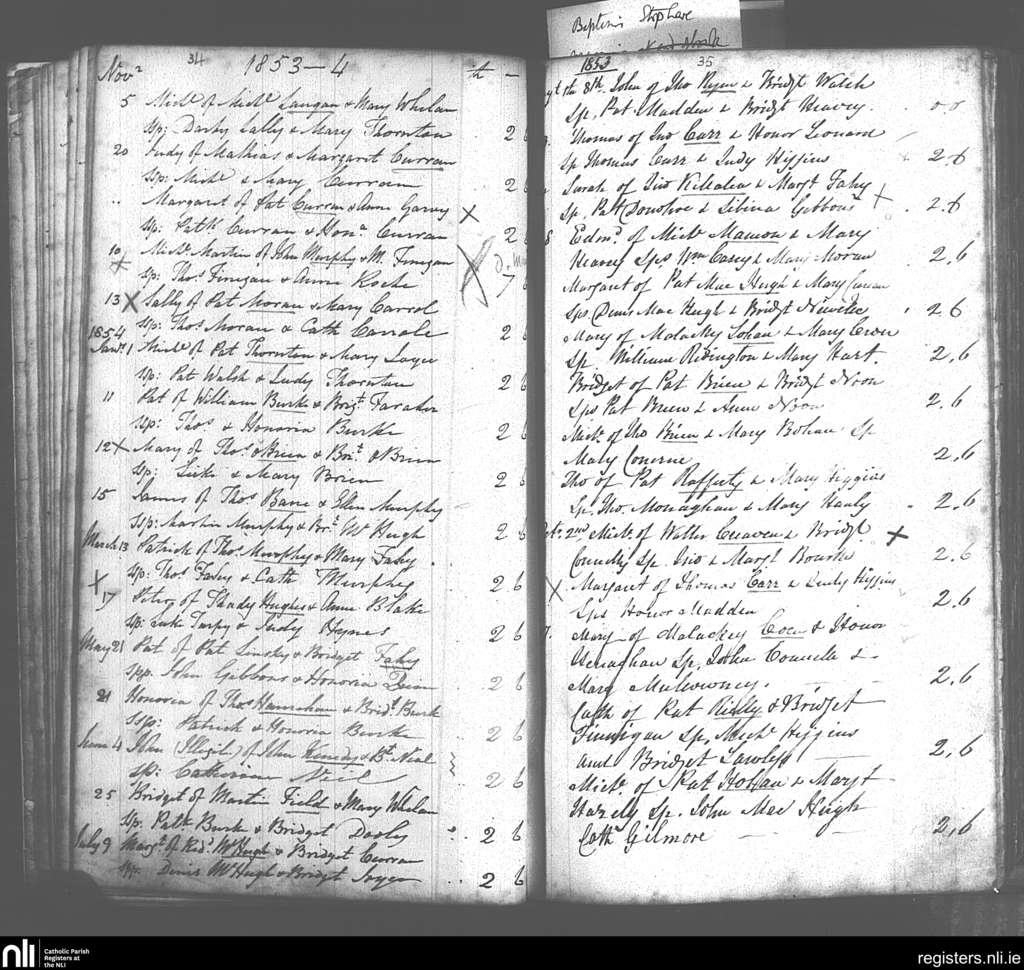 Baptisms Stop here
34
1853–4
Novr
5 Michl of Michl Langan & Mary Whelan
sp: Darby Lally & Mary Thornton 2 6
20 Judy of Mathias & Margaret Curran
sp: Michl & Mary Curran 2 6
" Margaret of Pat Curran & Ann Garvey X
sp: Patk Curran & Hona Curran 2 6
10 Michl Martin of John Murphy & M. Finegan
X sp: Thos Finegan & Anne Roche 6
13 X Sally of Pat Moran & Mary Carrol
sp: Thos Moran & Cath Carrole 2 6
1854
Jany 1 Michl of Pat Thornton & Mary Joyce
sp: Pat Walsh & Judy Thornton 2 6
11 Pat of William Burke & Brigt Faraher
sp: Thos & Honoria Burke 2 6
12 X Mary of Thos O'Brien & Brit O'Brien
sp: Luke & Mary Brien 2 6
15 James of Thos Bane & Ellen Murphy
sp: Martin Murphy & Brt McHugh 2 6
March 13 Patrick of Thos Murphy & Mary Fahy
sp: Thos Fahey & Cath Murphy 2 6
X 17 Peter of Thady Hughes & Anne Blake
sp: Luke Turpy & Judy Hynes 2 6
May 21 Pat of Pat Linskey & Bridget Fahy
spp. John Gibbons & Honoria 2 6
21 Honoria of Thos Hanrahan & Bridt Burk
ssp: Patrick & Honoria Burke 2 6
June 4 John (Illegit) of John Kenedy & Bt Neal
sp: Catherine Neil 2 6
25 Bridget of Martin Field & Mary Whelan
sp. Patk Burk & Bridget Dooly 2 6
July 9 Margt of Redd McHugh & Bridget Curran
spp. Denis McHugh & Bridgt Joyce 2 6
35
1853
8th. John of Tho Ryan & Bridgt Walsh
Sp. Pat Madden & Bridgt Heavey. 0 0
Thomas of Jno Carr & Honor Leonard
Sp Thomas Carr & Judy Higgins 2 6
Sarah of Jno Killalea & Margt Fahy X
Sp. Patt Donohoe & Sibina Gibbons 2.6
8 Edmd of Michl Mannon & Mary
Heavey Sps Wm Carey & Mary Moran 2,6
Margaret of Pat Mac Hugh & Mary Curran
Sps Denis Mac Hugh & Bridgt Newelle 2 6
Mary of Malachy Lohan & Mary Crow
Sp William Ridington & Mary Hart. 2,6
Bridget of Pat Brien & Bridgt Noon
Sps Pat Brien & Anne Noon 2.6
Michl of Tho Brien & Mary Bohan Sp
Mary Conerne 2,6
Tho of Pat Rafferty & Mary Higgins
Sp. Tho. Monaghan & Mary Hanly 2,6
2nd Michl of Walter Creaven & Bridgt X
Connelly Sp. Jno & Margt Bourke 2.6
X Margaret of Thomas Carr & Judy Higgins
Sps Honor Madden 2,6
7. Mary of Malackey Coen & Honor
Henaghan Sp. John Connelle &
Mary Mulowney. 2,6
Cath of Pat Kiely & Bridget
Finnigan Sp. Michl Higgins
and Bridget Lawless 2,6
Michl of Pat Hohan & Margt
Hazely Sp. John Mac Hugh
Cathn Gilmore 2,6
nli Catholic Parish
Registers at
the NLI
registers.nli.ie